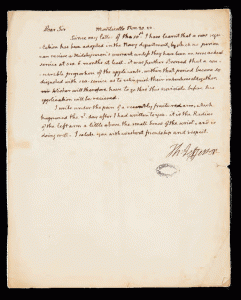 Dear Sir Monticello Nov. 29. 20
Since my letter of the 10th I have learnt that a new regu-
lation has been adopted in the Navy department, by which no person
can recieve a Midshipman's warrant until they have been on
service at sea 6 months at least. it was further observed that a con-
siderable proportion of the applicants within that period become so
disgusted with sea-service as to relinquish their
will therefore have to go thro' this noviciate before his
application will be recieved.
I write under the pain of a fractured arm, which
happened the 2d day after I had written to you. it is the Radius
of the left arm a little above the small bones of the wrist, and is
doing well. I salute you with constant friendship and respect.
Th: Jefferson